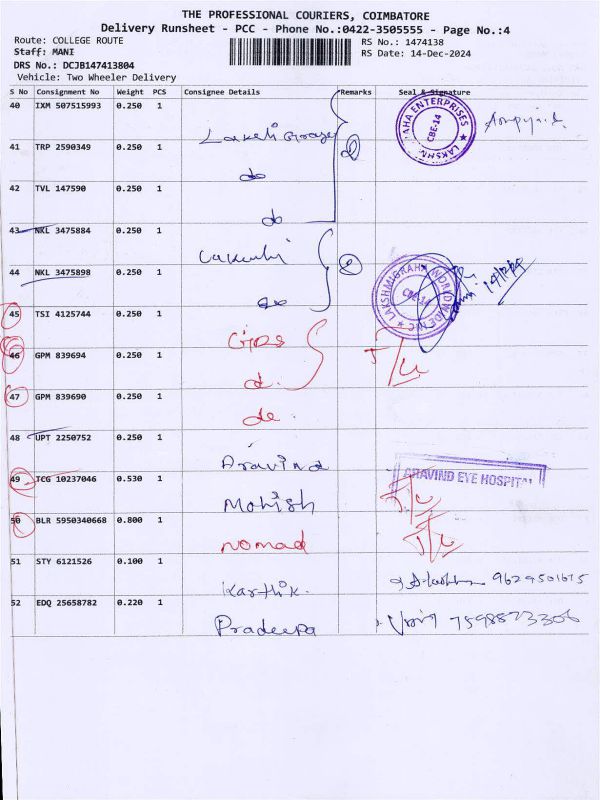 THE PROFESSIONAL COURIERS, COIMBATORE
Delivery Runsheet - PCC - Phone No.:0422-3505555 - Page No.:4
Route: COLLEGE ROUTE RS No.: 1474138
Staff: MANI RS Date: 14-Dec-2024
DRS No.: DCJB147413804
Vehicle: Two Wheeler Delivery
S No Consignment No Weight PCS Consignee Details Remarks Seal & Signature
40 IXM 507515993 0.250 1
41 TRP 2590349 0.250 1
do
42 TVL 147590 0.250 1
do
43 NKL 3475884 0.250 1
44 NKL 3475898 0.250 1
do
45 TSI 4125744 0.250 1
46 GPM 839694 0.250 1
47 GPM 839690 0.250 1
48 UPT 2250752 0.250 1
Aravind ARAVIND EYE HOSPITAL
49 TCG 10237046 0.530 1
Mohish
50 BLR 5950340668 0.800 1
nomad
51 STY 6121526 0.100 1
Karthik. 9629501615
52 EDQ 25658782 0.220 1
Pradeepa 7598873306